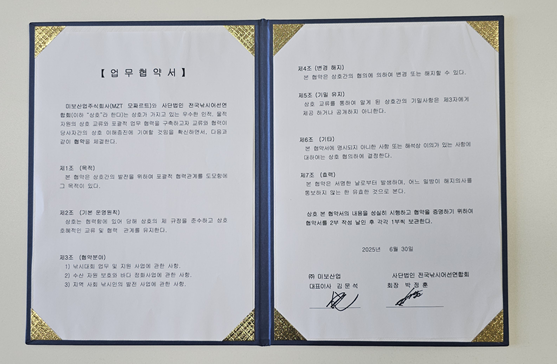 【 업 무 협 약 서 】
미보산업주식회사(MZT 모짜르트)와 사단법인 전국낚시어선연
합회(이하 "상호"라 한다)는 상호가 가지고 있는 우수한 인적, 물적
자원의 상호 교류와 포괄적 업무 협력을 구축하고자 교류와 협력이
당사자간의 상호 이해증진에 기여할 것임을 확신하면서, 다음과
같이 협약을 체결한다.
제1조 (목적)
본 협약은 상호간의 발전을 위하여 포괄적 협력관계를 도모함에
그 목적이 있다.
제2조 (기본 운영원칙)
상호는 협력함에 있어 당해 상호의 제 규정을 준수하고 상호
호혜적인 교류 및 협력 관계를 유지한다.
제3조 (협약분야)
1) 낚시대회 업무 및 지원 사업에 관한 사항.
2) 수산 자원 보호와 바다 정화사업에 관한 사항.
3) 지역 사회 낚시인의 발전 사업에 관한 사항.
제4조 (변경 해지)
본 협약은 상호간의 협의에 의하여 변경 또는 해지할 수 있다.
제5조 (기밀 유지)
상호 교류를 통하여 알게 된 상호간의 기밀사항은 제3자에게
제공 하거나 공개하지 아니한다.
제6조 (기타)
본 협약서에 명시되지 아니한 사항 또는 해석상 이의가 있는 사항에
대하여는 상호 협의하여 결정한다.
제7조 (효력)
본 협약은 서명한 날로부터 발생하며, 어느 일방이 해지의사를
통보하지 않는 한 유효한 것으로 본다.
상호 본 협약서의 내용을 성실히 시행하고 협약을 증명하기 위하여
협약서를 2부 작성 날인 후 각각 1부씩 보관한다.
2025년 6월 30일
㈜ 미보산업 사단법인 전국낚시어선연합회
대표이사 김 문 석 회장 박 정 훈